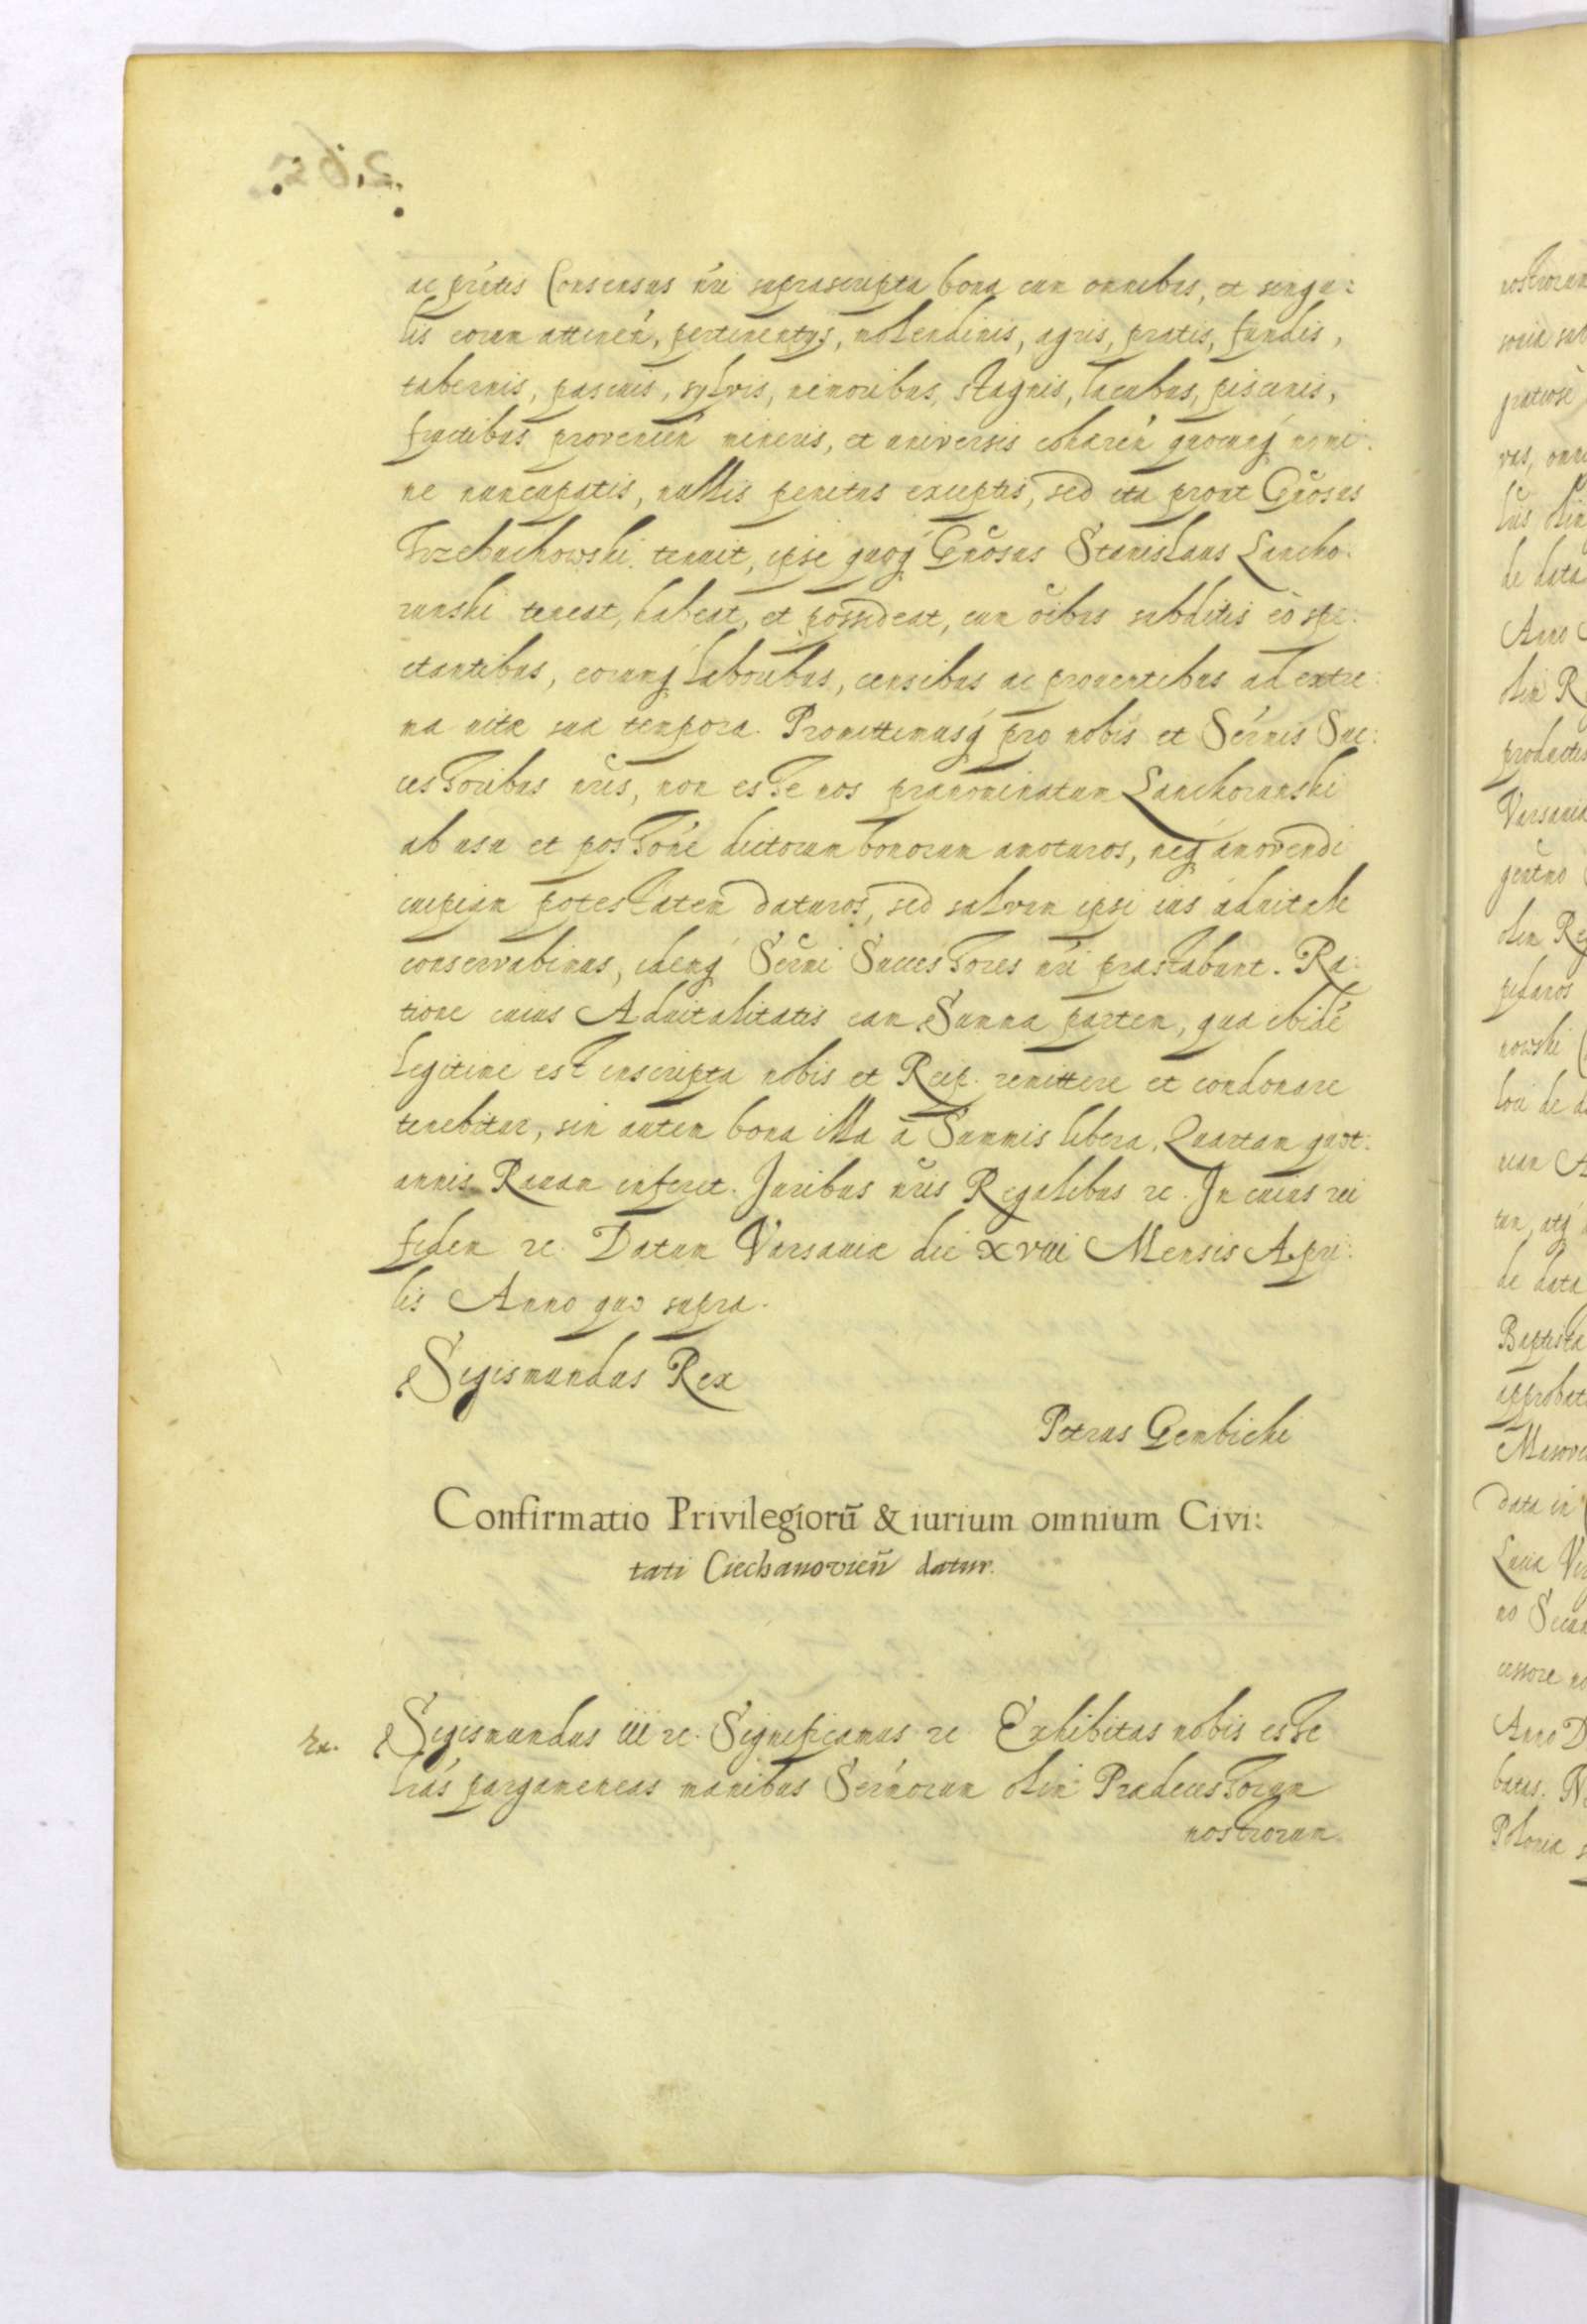 ac prńtis Consensus nŕi suprascripta bona cum omnibus, et singu:
lis eorum attineń, pertinentÿs, molendinis, agris, pratis, fundis,
tabernis, pascuis, sylvis, nemoribus, stagnis, lacubus, piscinis,
fructibus provenień mineris, et universis cohæreń quocunq́ nomi:
ne nuncupatis, nullis penitus exceptis, sed ita prout Gńosus
Trzebuchowski tenuit, ipse quoq́ Gńosus Stanislaus Lancko:
runski teneat, habeat, et possideat, cum oibus subditis eò spe:
ctantibus, eorumq́ laboribus, censibus ac proventibus ad extre:
ma vitæ suæ tempora. Promittimusq́ pro nobis et Sermis Suc:
cessoribus nris, non esse nos prænominatum Lanckorunski
ab usu et possone dictorum bonorum amoturos, neq́ amovendi
cuipiam potestatem daturos, sed salvum ipsi ius advitale
conservabimus, idemq́ Sermi Successores nri præstabunt. Ra:
tione cuius Advitalitatis eam Summæ partem, quæ ibidē
legitime est inscripta nobis et Reip. remittere et condonare
tenebitur, sin autem bona illa à Summis libera, Quartam quot:
annis Ravam inferet. Juribus nris Regalibus rc. In cuius rei
fidem rc. Datum Varsaviæ die xviii Mensis Apri:
lis Anno quo supra.
Sigismundus Rex
Petrus Gembicki
Confirmatio Privilegiorū & iurium omnium Civi:
tati Ciechanovień datur.
Ex. Sigismundus iii rc. Significamus rc Exhibitas nobis esse
lrás pargameneas manibus Sermorum olim Prædecessorum
nostrorum